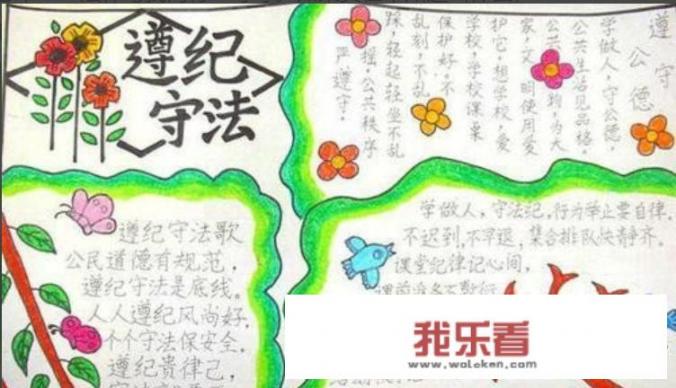 遵纪
守法
遵守
公德
学做人,守公德,
公共生活见品格。
公共 均,为大
家,文明使用爱
护它。想学校,爱
学校,学校课桌
保护好。不
乱刻,不乱
踩,轻起轻坐不乱
摇。公共秩序
严遵守。
遵纪守法歌
公民道德有规范,
遵纪守法是底线。
人人遵纪风尚好,
个个守法保安全。
遵纪贵律己,
学做人,守法纪,行为举止要自律。
不迟到,不早退,集合排队快静齐。
课堂纪律记心间,
我乐看
www.woleken.com